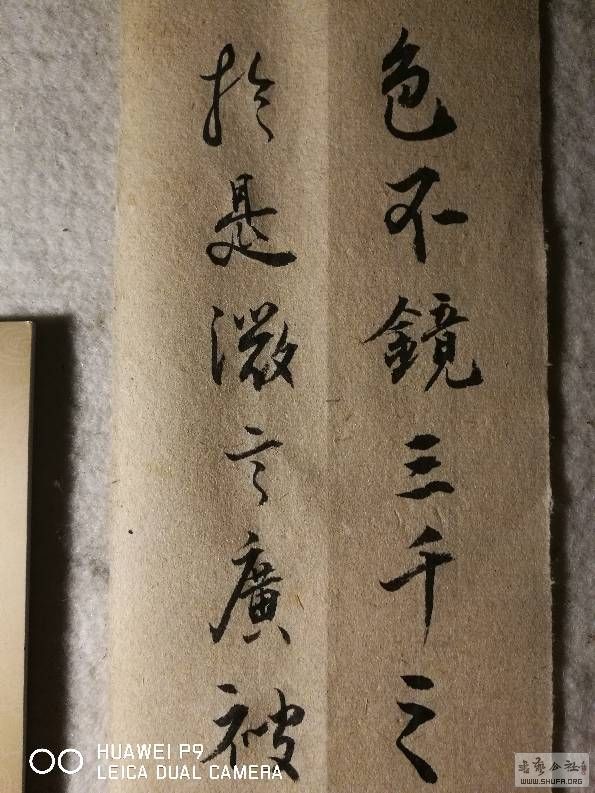 色不鏡三千之
於是微言廣被
HUAWEI P9
LEICA DUAL CAMERA
书艺公社
WWW.SHUFA.ORG